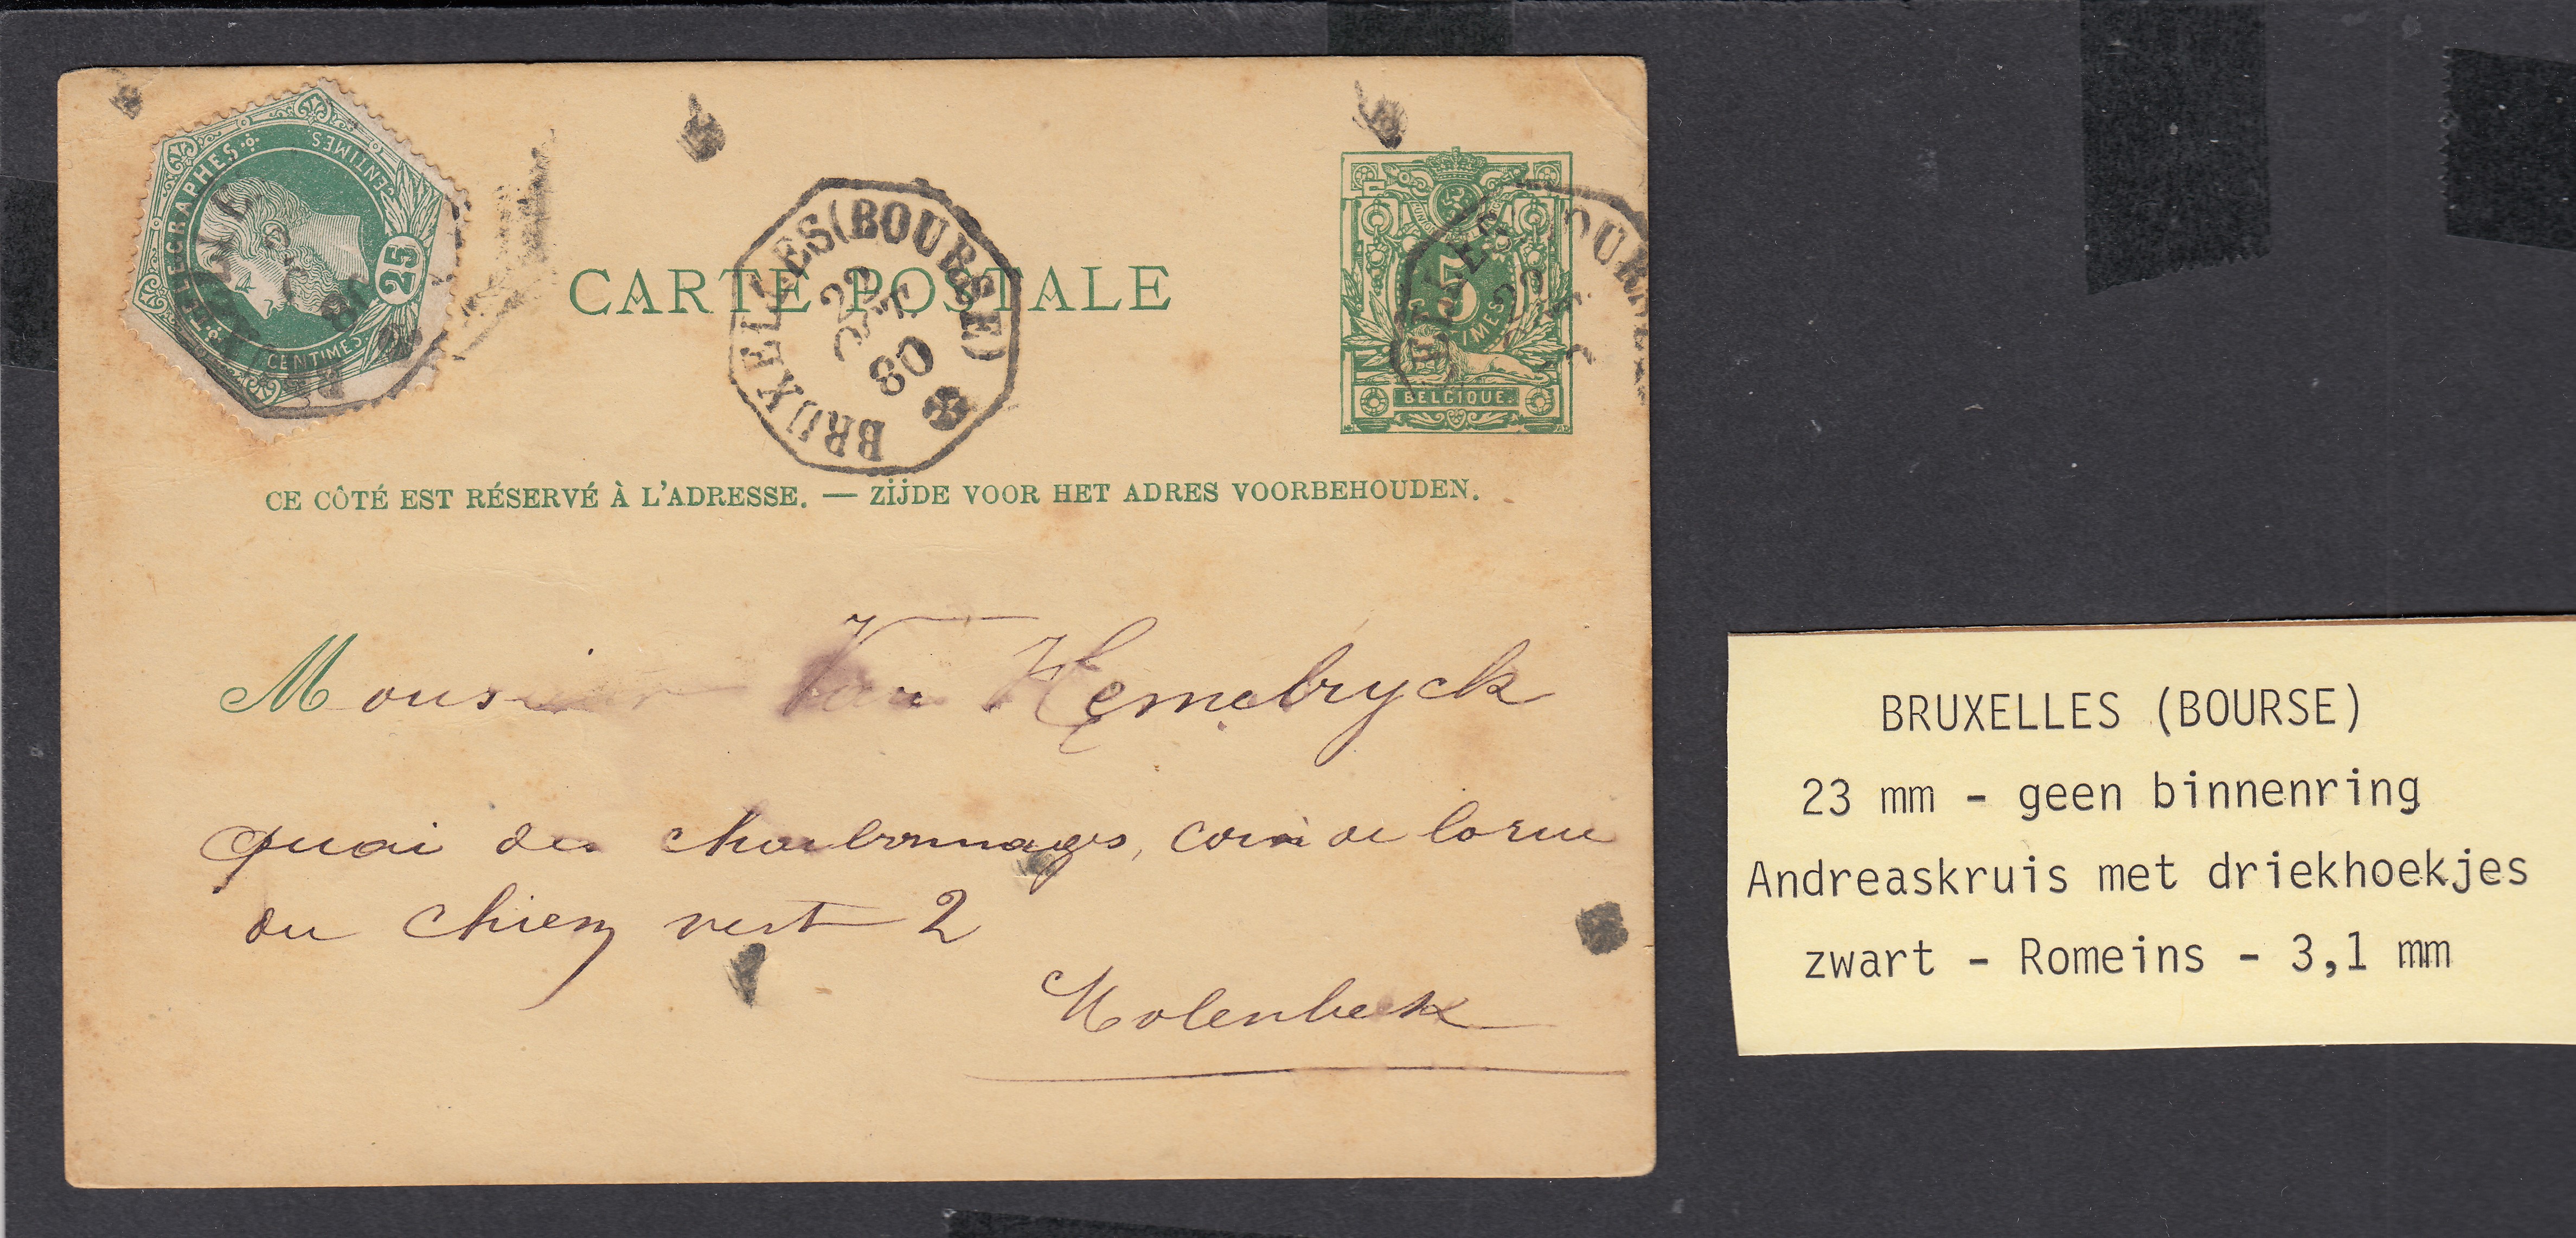 TÉLÉGRAPHES
CENTIMES
25
CENTIMES
CARTE POSTALE
BRUXELLES (BOURSE)
22
OCT
80
5
CENTIMES
BELGIQUE.
CE CÔTÉ EST RÉSERVÉ À L'ADRESSE. — ZIJDE VOOR HET ADRES VOORBEHOUDEN.
Monsieur Van Hemelryck
Quai des charbonnages, coin de la rue
du chien vert 2
Molenbeek
BRUXELLES (BOURSE)
23 mm - geen binnenring
Andreaskruis met driekhoekjes
zwart - Romeins - 3,1 mm